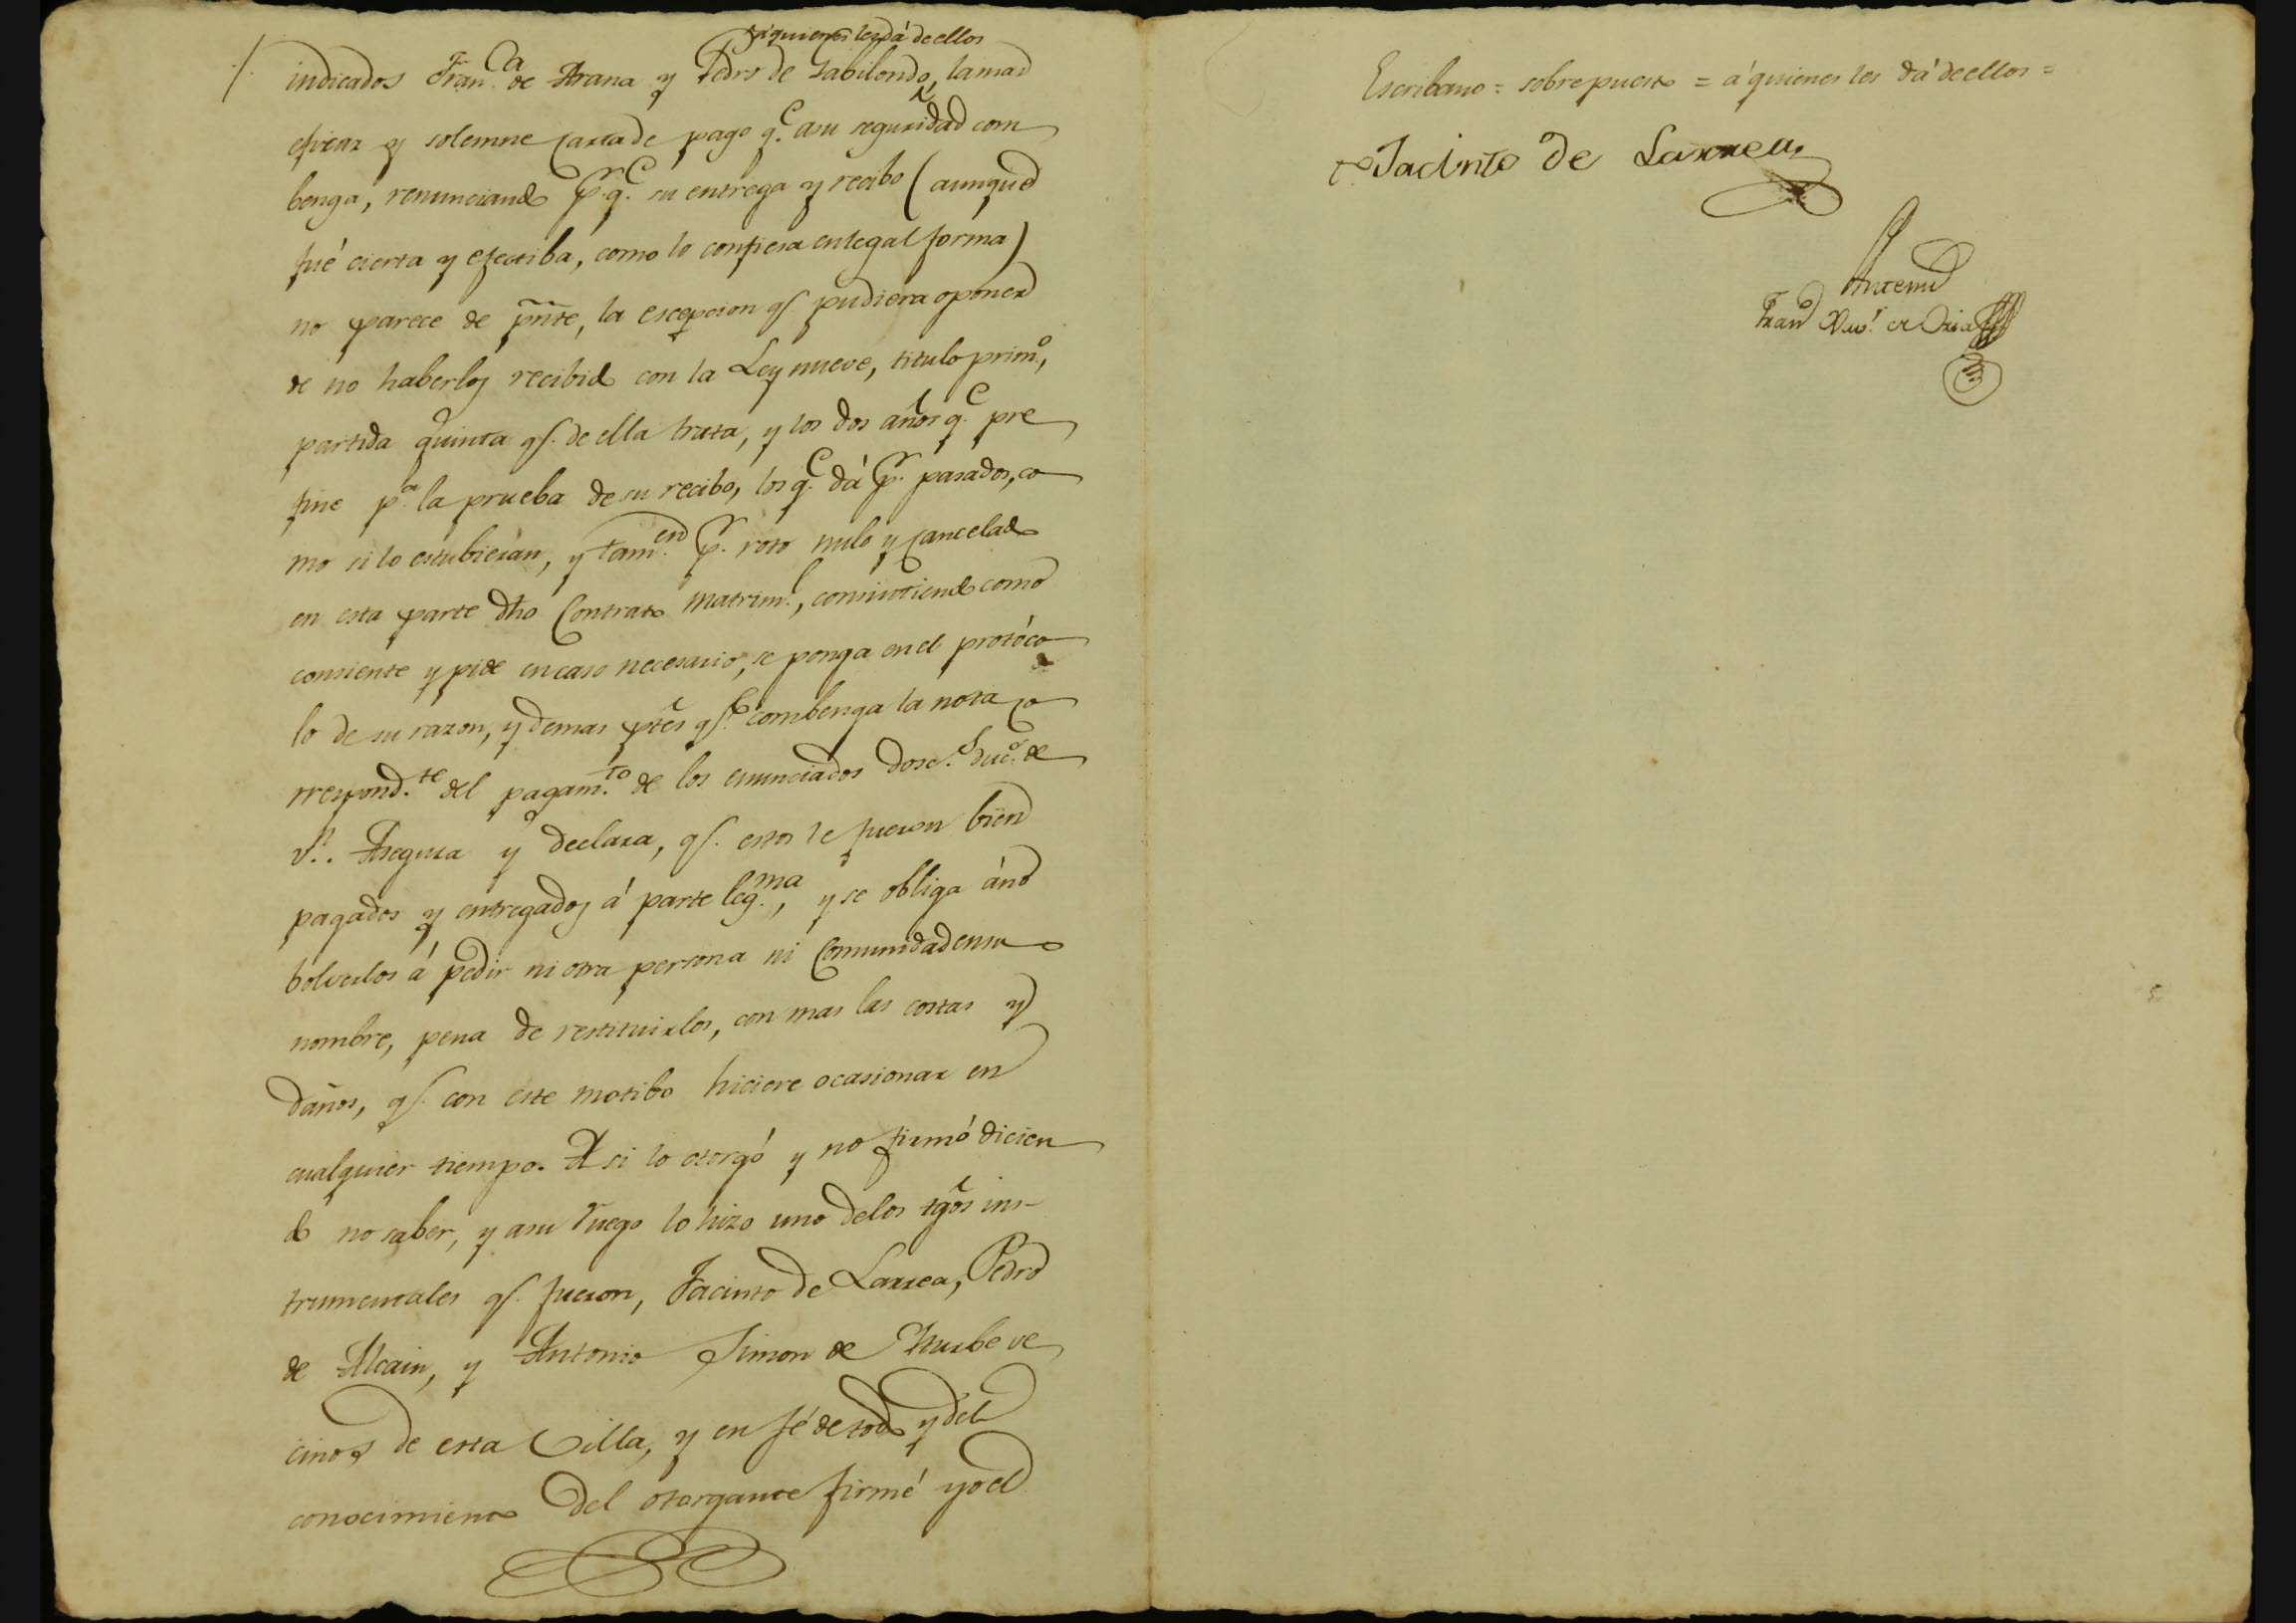 á quienes les dá de ellos
indicados Fran.ca de Arana y Pedro de Zabilondo, la mas
eficaz y solemne Carta de pago q.e asu seguridad com
benga, renunciando p.r q.e su entrega y recibo (aunque
fué cierta y efectiba, como lo confiesa en legal forma)
no parece de pñte, la escepcion q.e pudiera oponer
de no haberlos recibido con la Ley nueve, titulo prim.o,
partida quinta q.e de ella trata, y los dos años q.e pre
fine p.a la prueba de su recibo, los q.e dá p.r pasados, co
mo si lo estubieran, y tam.en p.r roto nulo y cancelado
en esta parte dho Contrato matrim.l, consintiendo como
consiente y pide en caso necesario, se ponga en el protóco
lo de su razon, y demas ptes q.e combenga la nota co
rrespond.te del pagam.to de los enunciados dosc.s duc.s de
v.n. Asegura y declara, q.e estos le fueron bien
pagados y entregados á parte leg.ma, y se obliga á no
bolverlos á pedir ni otra persona ni Comunidad en su
nombre, pena de restituirlos, con mas las costas y
daños, q.e con este motibo hiciere ocasionar en
cualquier tiempo. Asi lo otorgó y no firmó dicien
do no saber, y asu ruego lo hizo uno delos tgos ins-
trumentales q.e fueron, Jacinto de Larrea, Pedro
de Alcain, y Antonio Simon de Yturbe ve
cinos de esta Villa, y en fé de todo y del
conocimiento del otorgante firmé yo el
Escribano = sobre puesto = á quienes les dá de ellos =
Jacinto de Larrea
Antemi
Fran.co Xav.r de Oria